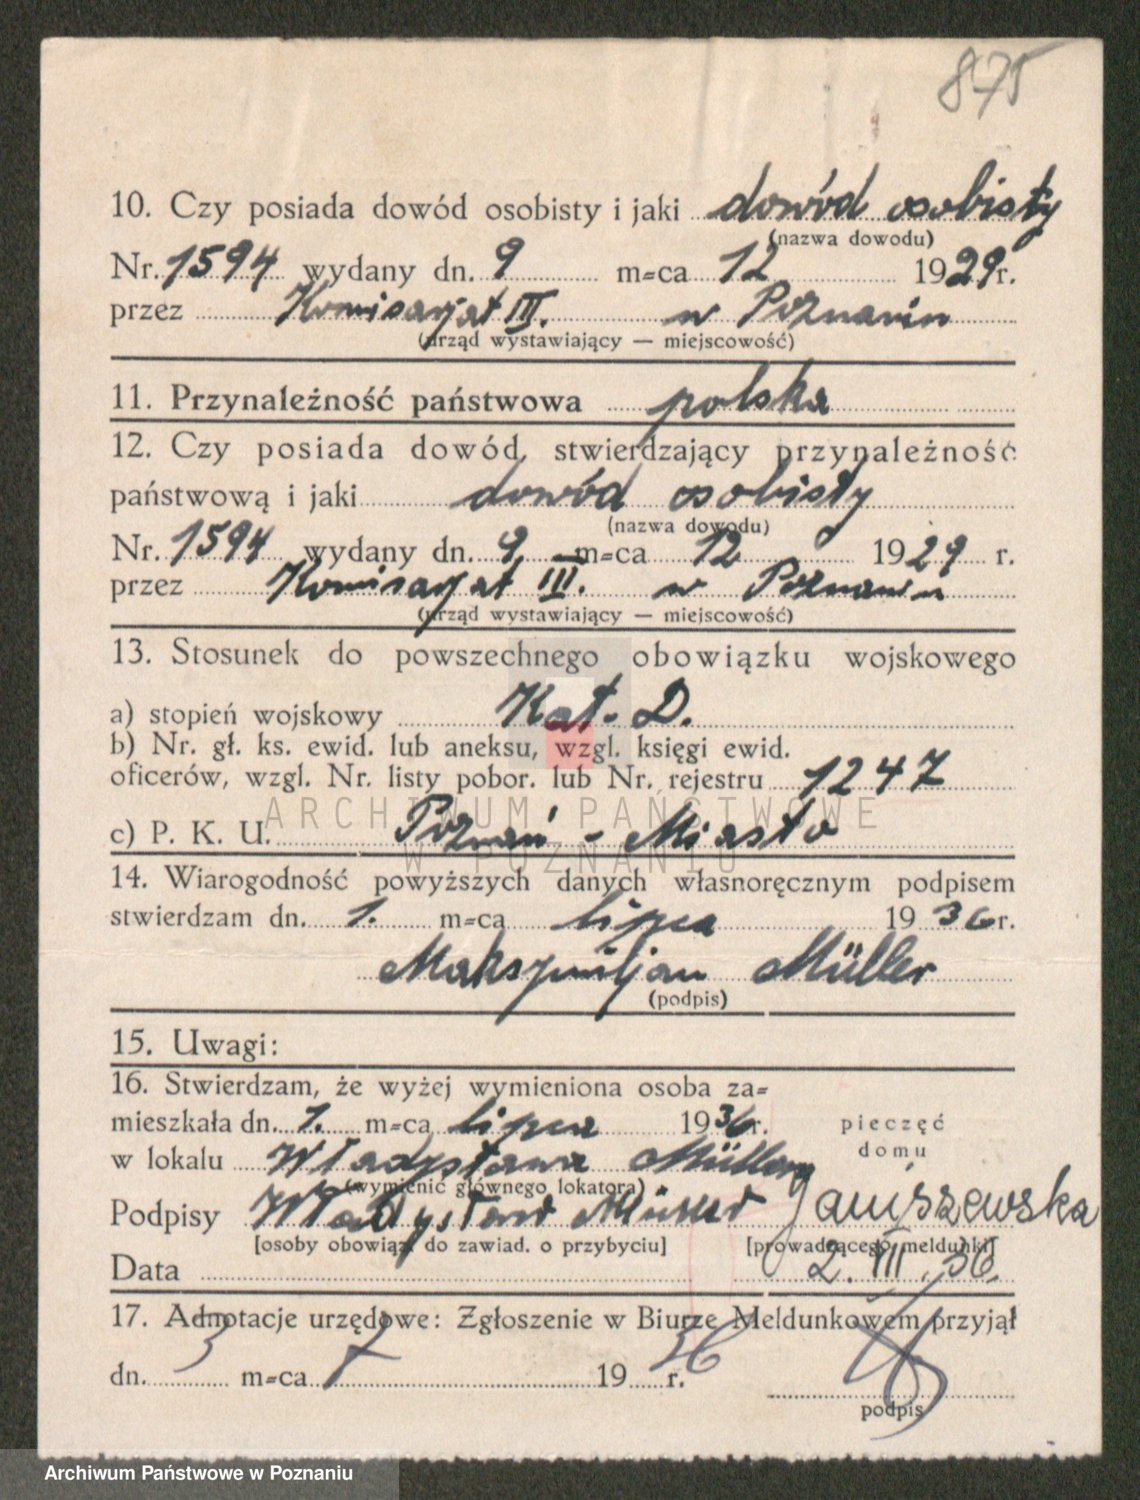 875
10. Czy posiada dowód osobisty i jaki dowód osobisty
(nazwa dowodu)
Nr. 1594 wydany dn. 9 m=ca 12 1929 r.
przez Komisarjat III. w Poznaniu
(urząd wystawiający — miejscowość)
11. Przynależność państwowa polska
12. Czy posiada dowód, stwierdzający przynależność
państwową i jaki dowód osobisty
(nazwa dowodu)
Nr. 1594 wydany dn. 9 m=ca 12 1929 r.
przez Komisarjat III. w Poznaniu
(urząd wystawiający — miejscowość)
13. Stosunek do powszechnego obowiązku wojskowego
a) stopień wojskowy Kat. D.
b) Nr. gł. ks. ewid. lub aneksu, wzgl. księgi ewid.
oficerów, wzgl. Nr. listy pobor. lub Nr. rejestru 1247
ARCHIWUM PAŃSTWOWE
c) P. K. U. Poznań - Miasto
W POZNANIU
14. Wiarogodność powyższych danych własnoręcznym podpisem
stwierdzam dn. 1. m=ca lipca 1936 r.
Maksymiljan Müller
(podpis)
15. Uwagi:
16. Stwierdzam, że wyżej wymieniona osoba za=
mieszkała dn. 1. m=ca lipca 1936 r.
pieczęć
domu
w lokalu Władysława Müllera
(wymienić głównego lokatora)
Podpisy Władysław Müller Janiszewska
[osoby obowiąz. do zawiad. o przybyciu] [prowadzącego meldunki]
Data 2. VII. 36.
17. Adnotacje urzędowe: Zgłoszenie w Biurze Meldunkowem przyjął
dn. 3 m=ca 7 1936 r.
podpis
Archiwum Państwowe w Poznaniu